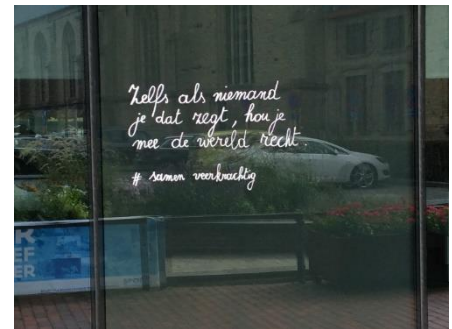 Zelfs als niemand
je dat zegt, hou je
mee de wereld recht.
# samen veerkrachtig